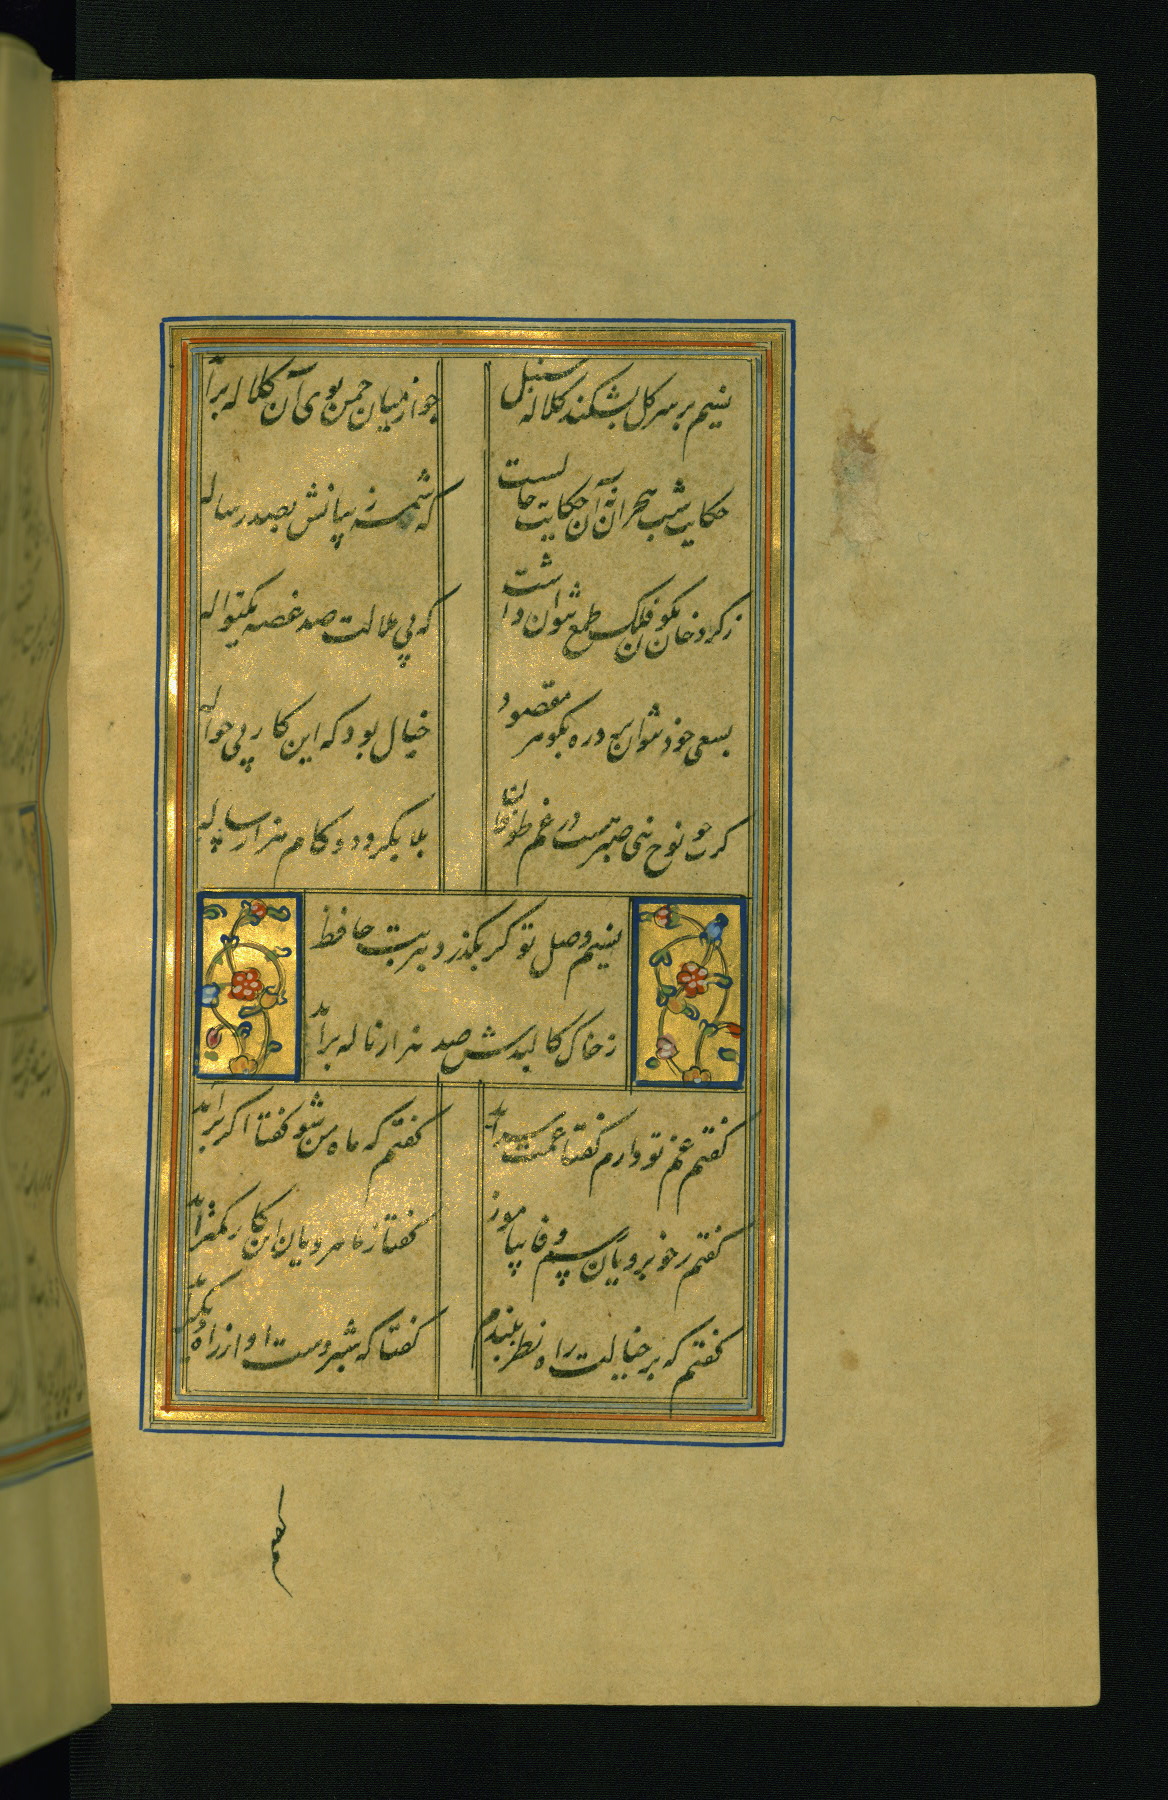 نسیم بر سر کل بشکند کلاله سنبل
چو از میان چمن بوی آن کلاله برآ
حکایت شب هجران نه آن حکایت حالست
که شمه ز بیانش بصد رساله
ز کرد خوان نکون فلک طمع نتوان داشت
که بی ملالت صد غصه یکنواله
بسعی خود نتوان برد ره بکوهر مقصود
خیال بود که این کار بی حواله
کرت چو نوح نبی صبر هست در غم طوفان
بلا بکردد و کام هزار ساله
نسیم وصل تو کر بکذرد بتربت حافظ
ز خاک کالبدش صد هزار ناله برآید
کفتم غم تو دارم کفتا غمت سرآید
کفتم که ماه من شو کفتا اکر برآید
کفتم ز خوبرویان رسم وفا بیاموز
کفتا ز ماهرویان این کار کمتر آید
کفتم که بر خیالت راه نظر ببندم
کفتا که شبروست او از راه دیکر آید
کفتم